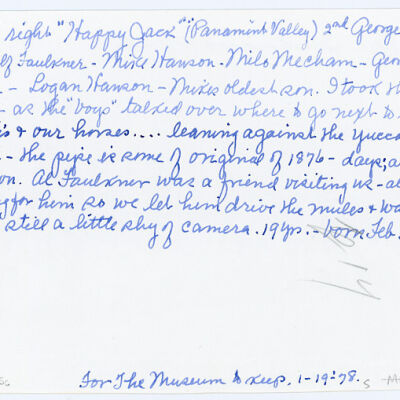 right "Happy Jack" (Panamint Valley) 2nd George
Faulkner - Mike Hanson - Milo Mecham - Geo
- Logan Hanson - Mikes oldest son. I took th
- as the "boys" talked over where to go next to
is & our horses.... leaning against the yucca
- the pipe is some of original of 1876 - days; a
on. Al Faulkner was a friend visiting us - al
g for him so we let him drive the mules & wa
still a little shy of camera. 19 yrs. - born Feb.
For The Museum to keep. 1-19-78.